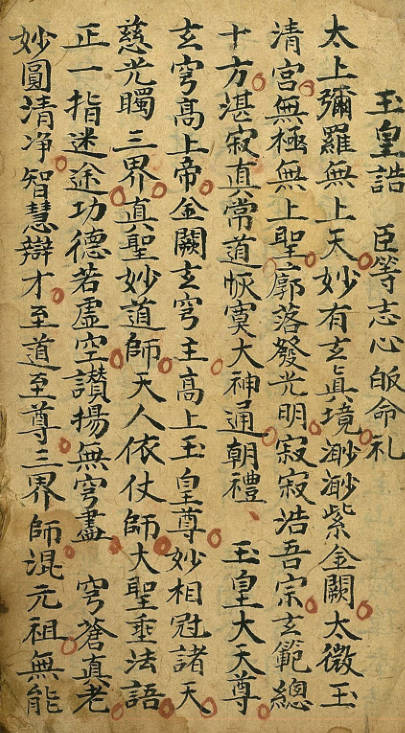 玉皇誥 臣等志心皈命礼
太上彌羅無上天妙有玄眞境渺渺紫金闕太微玉
清宮無極無上聖廓落發光明寂寂浩吾宗玄範總
十方湛寂真常道恢寞大神通朝禮 玉皇大天尊
玄穹髙上帝金闕玄穹主高上玉皇尊妙相冠諸天
慈光矚三界真聖妙道師天人依仗師大聖垂法語
正一指迷途功德若虛空讃揚無穹盡 穹蒼真老
妙圓清净智慧辯才至道至尊三界師混元祖無能